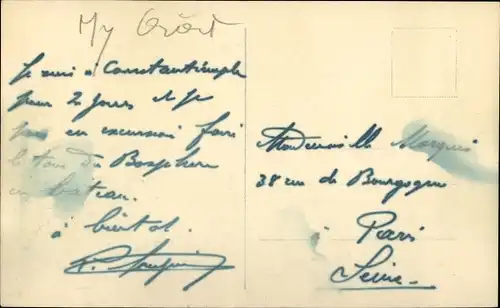 Je suis à Constantinople
pour 2 jours et je
en excursion faire
le tour du Bosphore
en bateau.
à bientôt.
Mademoiselle Marquis
38 rue de Bourgogne
Paris
Seine